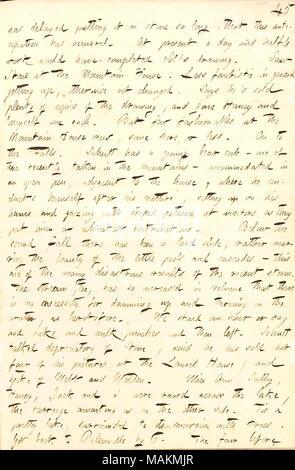 45
has delayed putting it on stone so long, that this anti-
cipation has accrued. At present a day and half's
work would have completed Sol's drawing. Saw
Stone at the Mountain House. Less fantastic in general
getting up, otherwise not changed. Says he's sold
plenty of copies of the drawing, and gave Haney and
myself one each. But few fashionables at the
Mountain House now, some more or less. On to
the Falls. Schutt has a young bear cub – one of
two recently taken in the mountains – accommodated in
an open pen, adjacent to the house; where he con-
ducts himself after his nature, sitting up on his
hams and gazing with stupid patience at visitors as they
put him
Below the
second Fall there has been a land slide, rather mar-
ring the beauty of the little pools and cascades – this
one of the many disastrous results of the recent storm.
The stream, they, has so increased in volume that there
is no necessity for damming up and turning on the
water, as heretofore. We staid an hour or so,
and cake and milk punches and then left. Schutt
talked deprecatory of Stone; said he has sold not
four of his pictures at the Laurel House; and
spoke of Webst and Wodden. Miss Ann, Sally,
Haney, Jack and I were rowed across the lake,
the carriage awaiting us on the other side. 'Tis a
pretty lake, surrounded to its margin with trees.
Got back to Palenville by 6. The four before
alamy
Image ID: MAKMJR
www.alamy.com